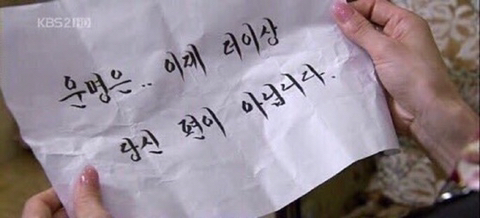 KBS2 HD
운명은.. 이제 더이상
당신 편이 아닙니다.